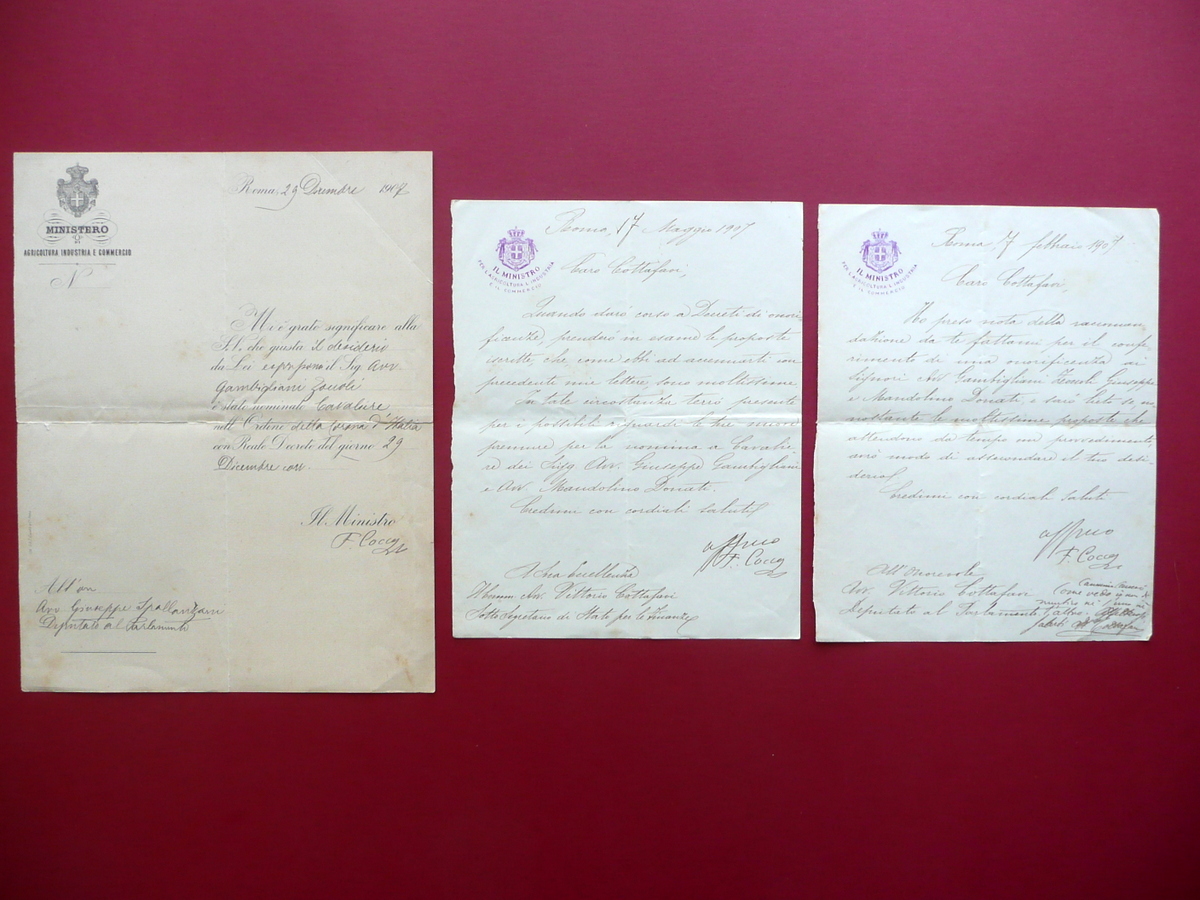 MINISTERO
DI
AGRICOLTURA INDUSTRIA E COMMERCIO
N
Roma, 29 Dicembre 1907
Mi è grato significare alla
S.V. che giusta il desiderio
da Lei espressomi il Sig. Avv.
Gambigliani Zoccoli
è stato nominato Cavaliere
nell'Ordine della Corona d'Italia
con Reale Decreto del giorno 29
Dicembre corr.
Il Ministro
F. Cocco
All'on
Avv Giuseppe Spallanzani
Deputato al Parlamento
IL MINISTRO
PER L'AGRICOLTURA L'INDUSTRIA
E IL COMMERCIO
Roma, 17 Maggio 1907
Caro Cottafavi,
Quando darò corso a Decreti di onori-
ficenze, prenderò in esame le proposte
iscritte, che come ebbi ad accennarti in
precedenti mie lettere, sono moltissime
In tale circostanza terrò presenti
per i possibili riguardi le tue
premure per la nomina a Cavalie-
re dei Sigg Avv. Giuseppe Gambigliani
e Avv. Mandolino Donati.
Credimi con cordiali saluti
affmo
F. Cocco
A Sua Eccellenza
Avv. Vittorio Cottafavi
Sotto Segretario di Stato per le Finanze
IL MINISTRO
PER L'AGRICOLTURA L'INDUSTRIA
E IL COMMERCIO
Roma 17 febbraio 1907
Caro Cottafavi,
Ho preso nota della raccoman-
dazione da te fattami per il confe-
rimento di una onorificenza ai
signori Avv Gambigliani Zoccoli Giuseppe
e Mandolino Donati, e sarò lieto se no-
nostante le moltissime proposte che
attendono da tempo un provvedimento
avrò modo di assecondare il tuo desi-
derio.
Credimi con cordiali saluti
affmo
F. Cocco
All'Onorevole
Avv. Vittorio Cottafavi
Deputato al Parlamento
Come vedi
l'altro
saluti